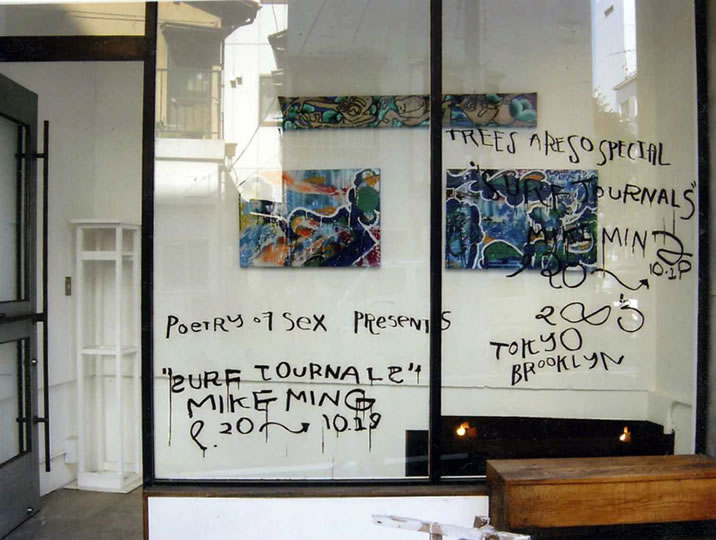 TREES ARE SO SPECIAL
"SURF JOURNALS"
MIKE MING
9.20~10.19
2005
TOKYO
BROOKLYN
POETRY of SEX PRESENTS
"SURF JOURNALS"
MIKE MING
9.20~10.19